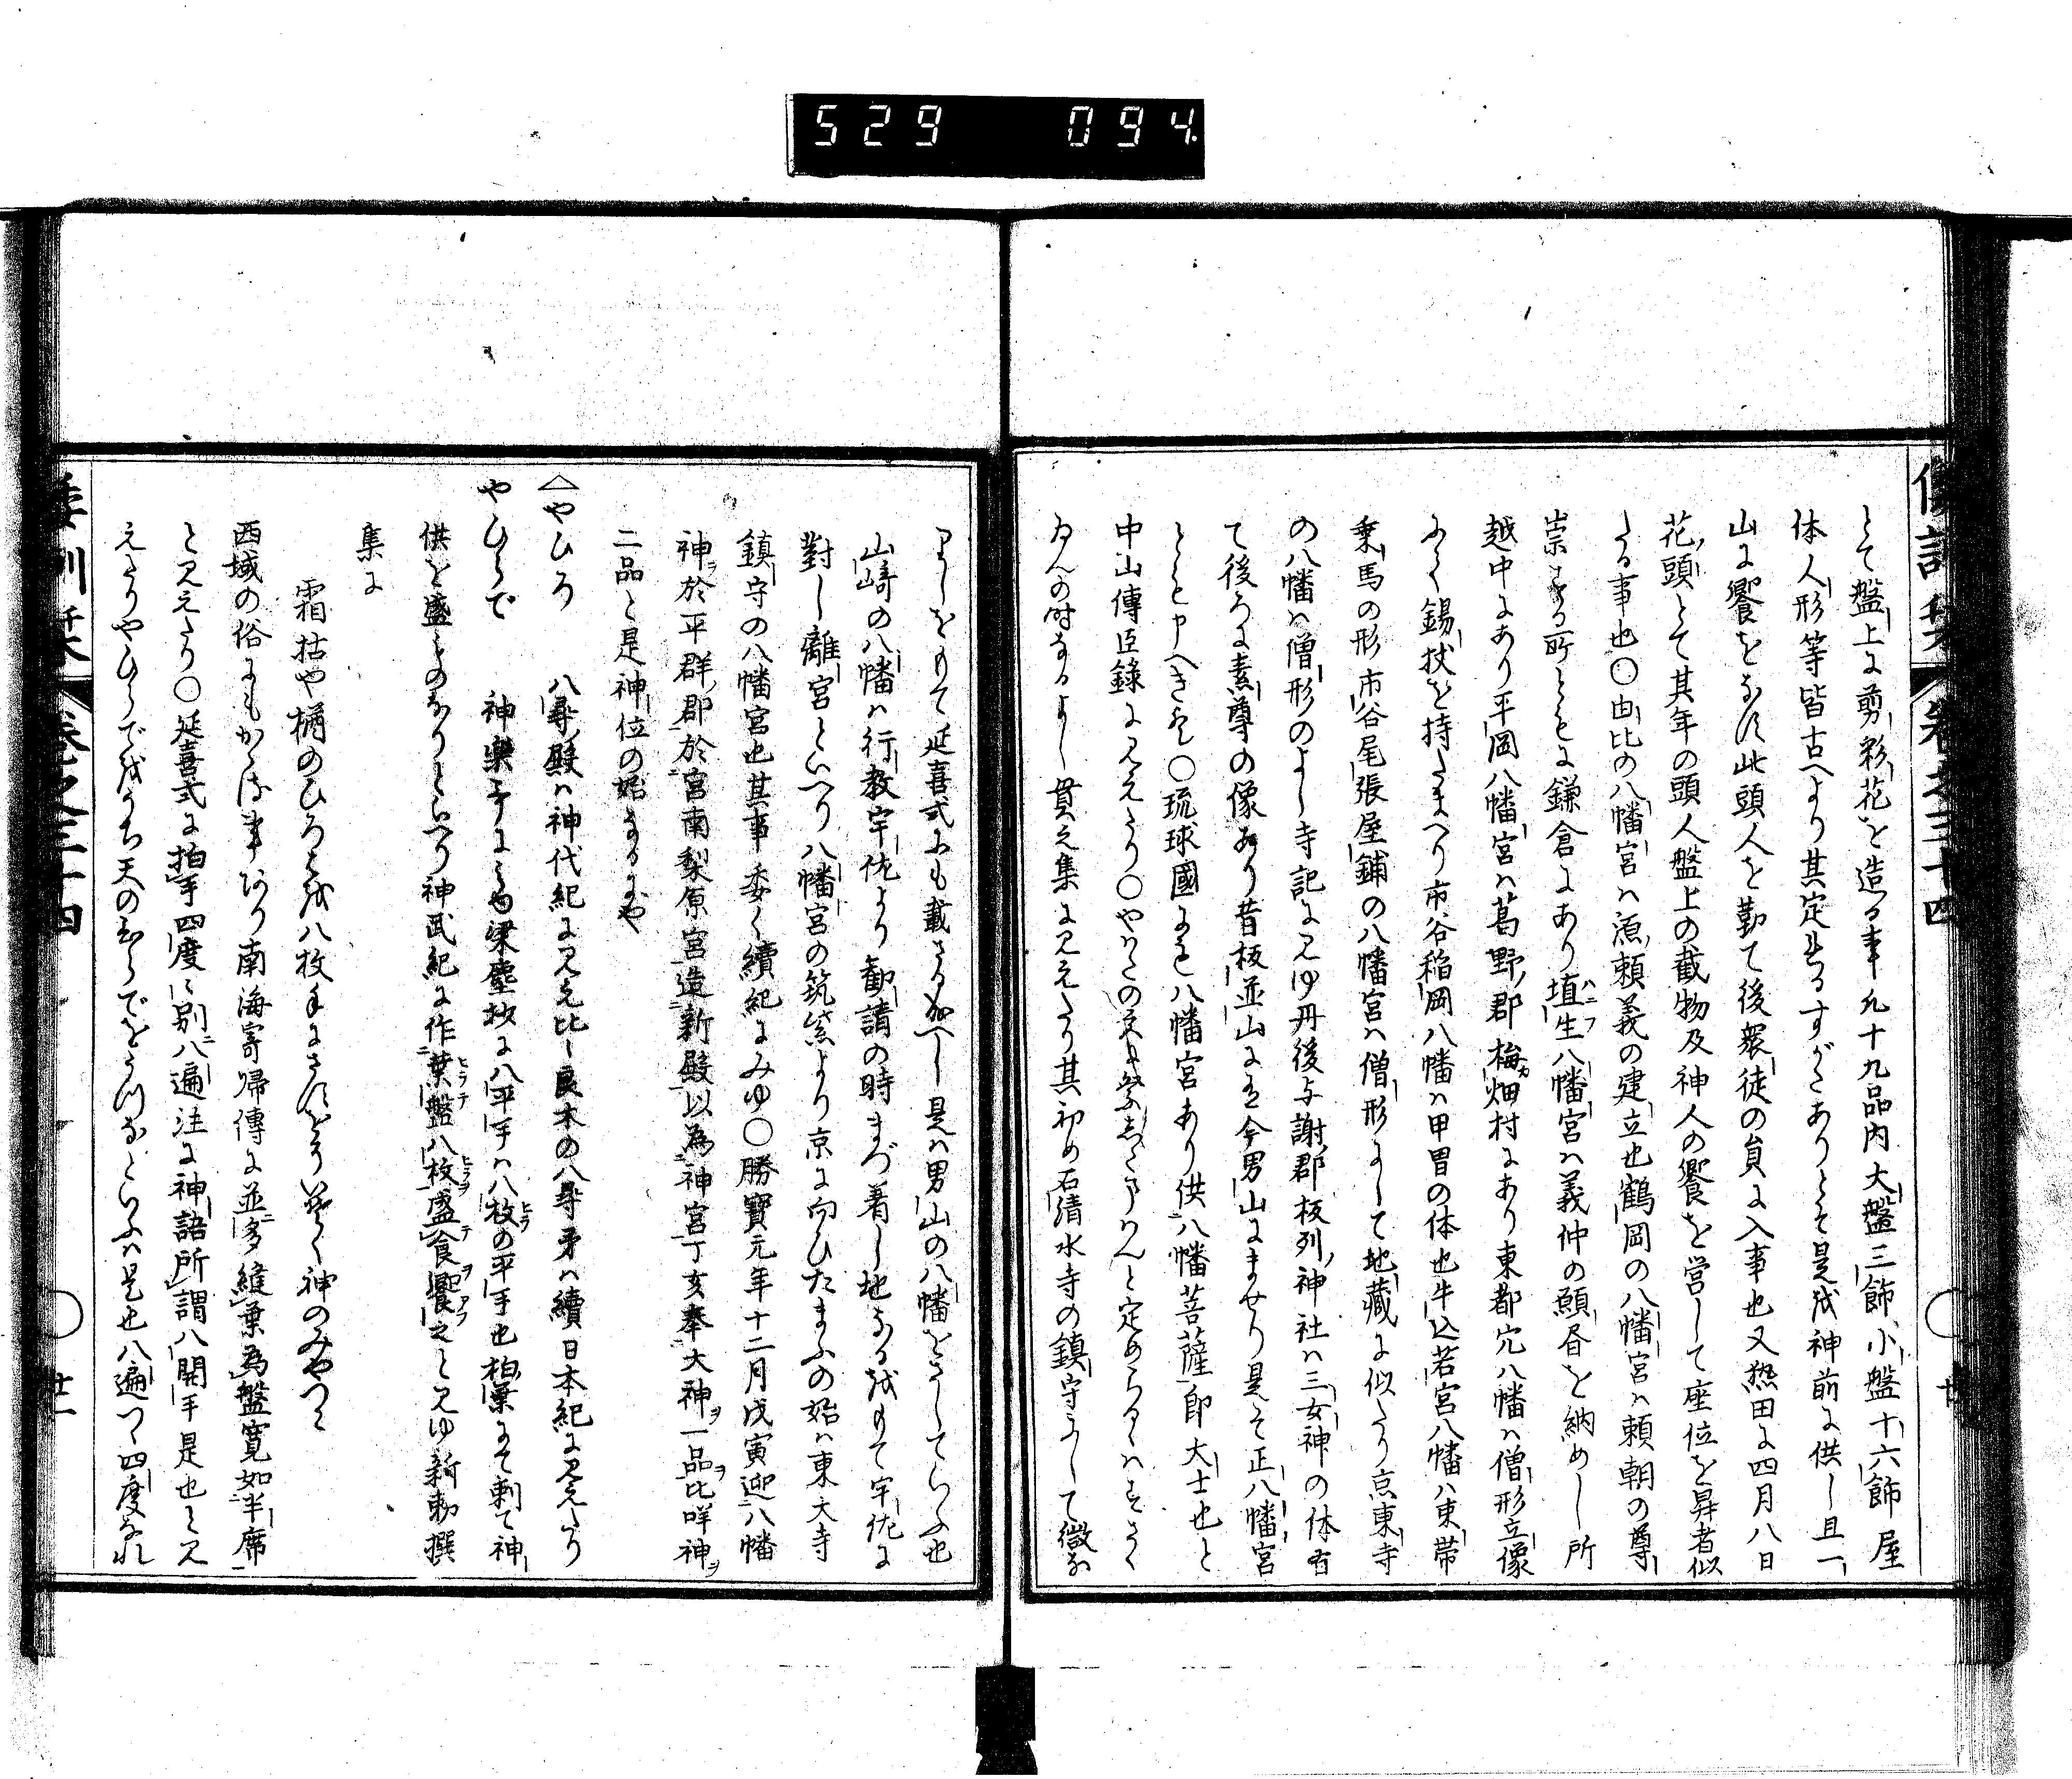 529 094
倭訓栞 巻之三十四
とて盤上に剪彩花を造る事凡十九品内大盤三飾小盤十六飾屋
体人形等皆古へより其定れるすがたありとそ是を神前に供し且一
山に饗をなす此頭人を勤て後衆徒の員に入事也又熱田に四月八日
花頭とて其年の頭人盤上の截物及神人の饗を営して座位を昇者似
たる事也〇由比の八幡宮は源頼義の建立也鶴岡の八幡宮は頼朝の尊
崇する所ともに鎌倉にあり埴生八幡宮は義仲の願書を納めし所
越中にあり平岡八幡宮は葛野郡梅畑村にあり東都穴八幡は僧形立像
にて錫杖を持たまへり市谷稲岡八幡は甲冑の体也牛込若宮八幡は束帯
乗馬の形市谷尾張屋鋪の八幡宮は僧形にして地蔵に似たり京東寺
の八幡は僧形のよし寺記に見ゆ丹後与謝郡板列神社は三女神の体有
て後ろに素尊の像あり昔板並山に在今男山にませり是そ正八幡宮
とも申へきと〇琉球國にも八幡宮あり供八幡菩薩即大士也と
中山傳信錄に見えたり〇やはたの宮
の時なるよし貫之集に見えたり其初め石清水寺の鎮守にして微な
りしをもて延喜式にも載さるなへし是は男山の八幡をさしていふ也
山﨑の八幡は行教宇佐より勧請の時まづ着し地なるをもて宇佐に
對し離宮といへり八幡宮の筑紫より京に向ひたまふの始は東大寺
鎮守の八幡宮也其事委く續紀にみゆ〇勝寶元年十二月戊寅迎八幡
神於平群郡於宮南梨原宮造新殿以為神宮丁亥奉大神一品比咩神
二品と是神位の始なるにや
△やひろ 八尋殿は神代紀に見え比々良木の八尋矛は續日本紀に見えたり
やひらで 神樂哥にみゆ梁塵抄に八平手は八枚の平手也柏葉にて刺て神
供を盛ものなりといへり神武紀に作葉盤八枚盛食饗之と見ゆ新勅撰
集に
霜枯や楢のひろはを八枚手にさすとそいそく神のみやつこ
西域の俗にもかゝる事あり南海寄帰傳に並多縫葉為盤寛如半席
と見えたり〇延喜式に拍手四度々別八遍注に神語所謂八開手是也と見
えたりやひらでをうち天のひらでをうつなといふは是也八遍つゝ四度なれ
倭訓栞 巻之三十四
廿一